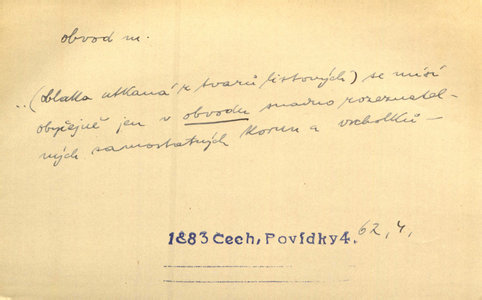 obvod m.
..(oblaka utkaná z tvarů listových) se mísí
obyčejně jen v obvodu snadno rozeznatel-
ných samostatných korun a vrcholků –
1883 Čech, Povídky 4. 62, 4,